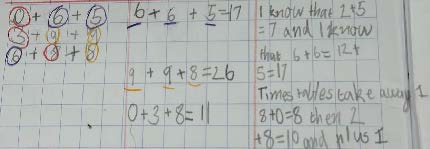 0+6+5
3+9+8
6+8+8
6+6+5=17
9+9+8=26
0+3+8=11
I know that 2+5
=7 and I know
that 6+6=12+
5=17
Times tables take away 1
8+0=8 then 2
+8=10 and plus 1